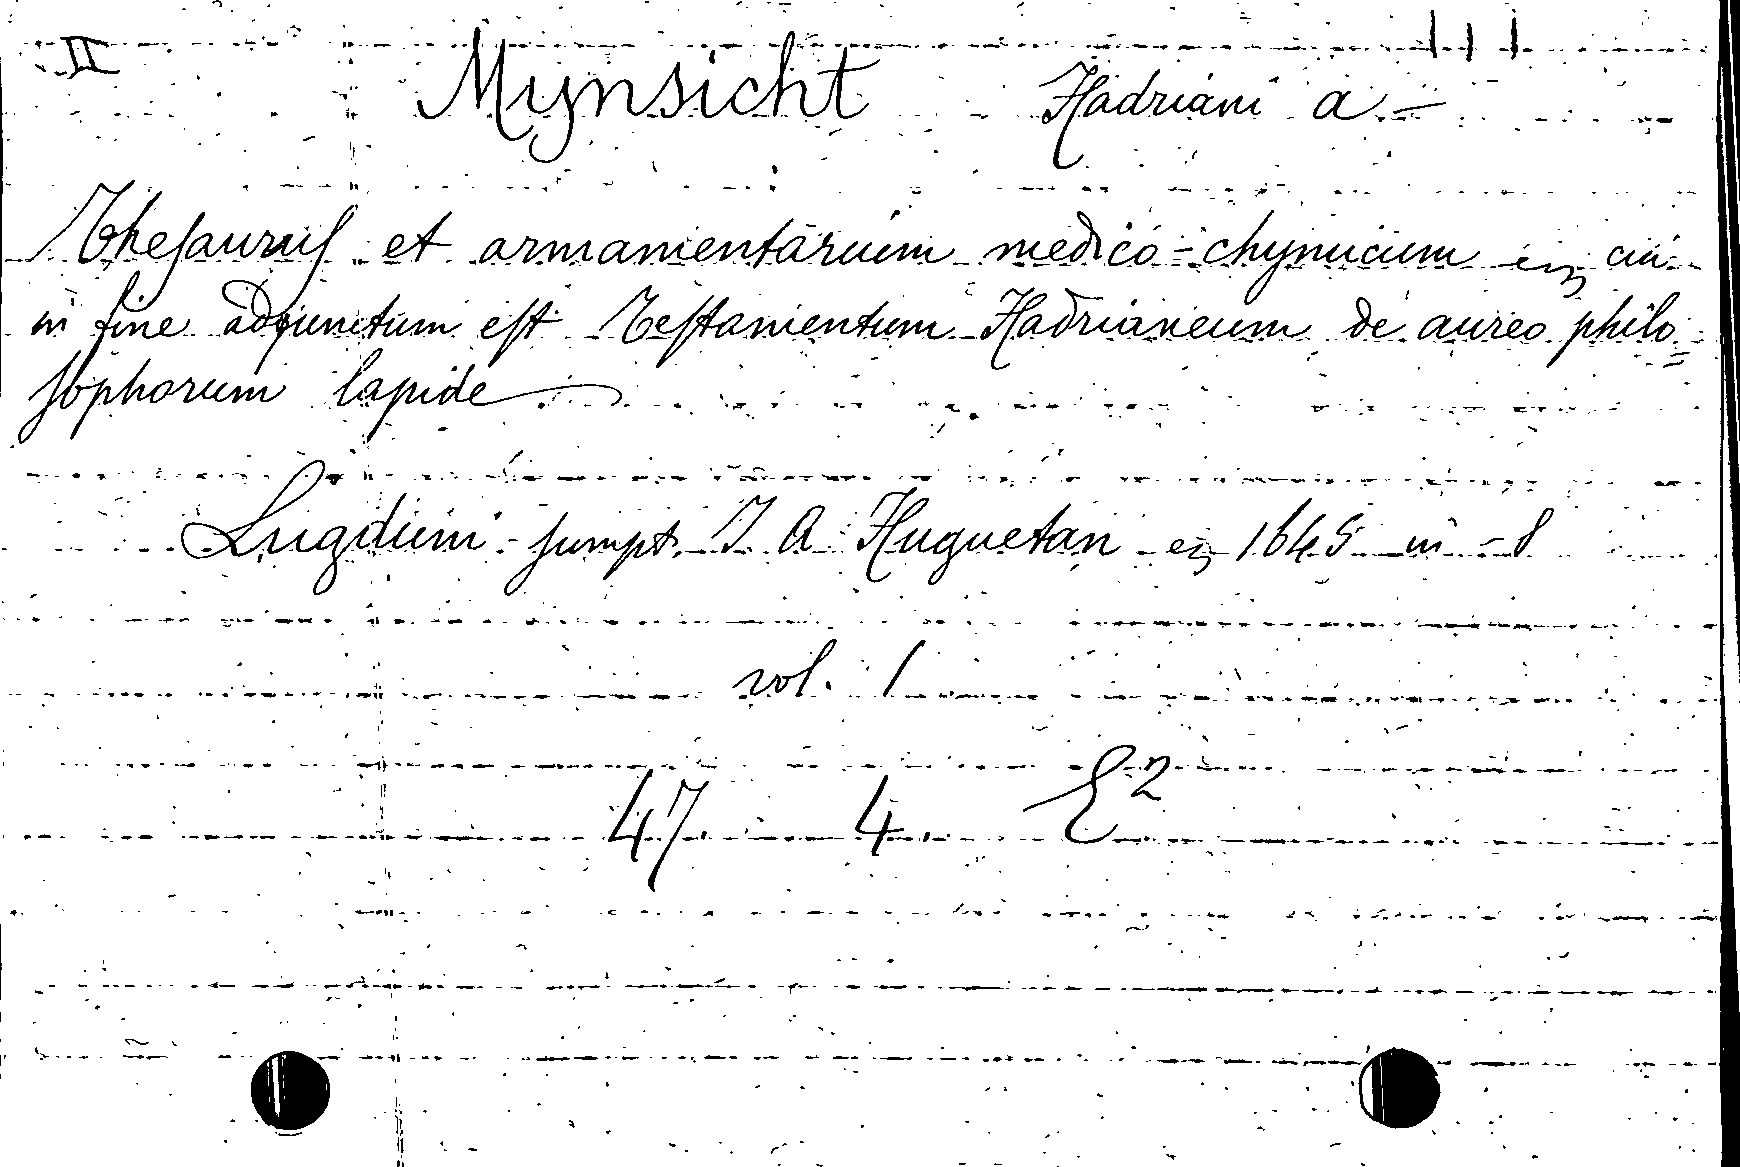 II
Mynsicht Hadriani a —
Thesaurus et armamentarium medico-chymicum cui
in fine adjunctum est Testamentum Hadrianeum de aureo philo=
sophorum lapide
Lugduni sumpt. J A Huguetan 1645 in-8
vol. 1
47. 4. E2